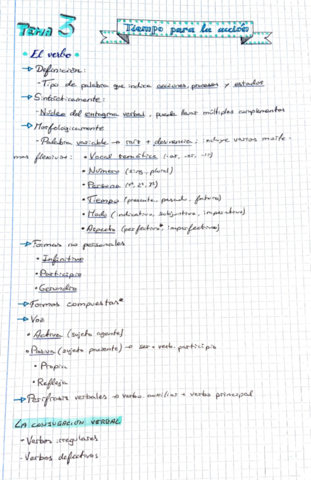 TEMA 3
Tiempo para la acción
• El verbo •
→ Definición:
- Tipo de palabra que indica acciones, procesos y estados
→ Sintácticamente:
- Núcleo del sintagma verbal, puede llevar múltiples complementos
→ Morfológicamente
- Palabra variable → raíz + desinencia; incluye varios morfe-
mas flexivos: • Vocal temática (-ar, -er, -ir)
• Número (sing, plural)
• Persona (1ª, 2ª, 3ª)
• Tiempo (presente, pasado, futuro)
• Modo (indicativo, subjuntivo, imperativo)
• Aspecto (perfectivo*, imperfectivo)
→ Formas no personales
• Infinitivo
• Participio
• Gerundio
→ Formas compuestas*
→ Voz
• Activa (sujeto agente)
• Pasiva (sujeto paciente) → ser + verb. participio
• Propia
• Refleja
→ Perífrasis verbales → verbo auxiliar + verbo principal
LA CONJUGACIÓN VERBAL
- Verbos irregulares
- Verbos defectivos